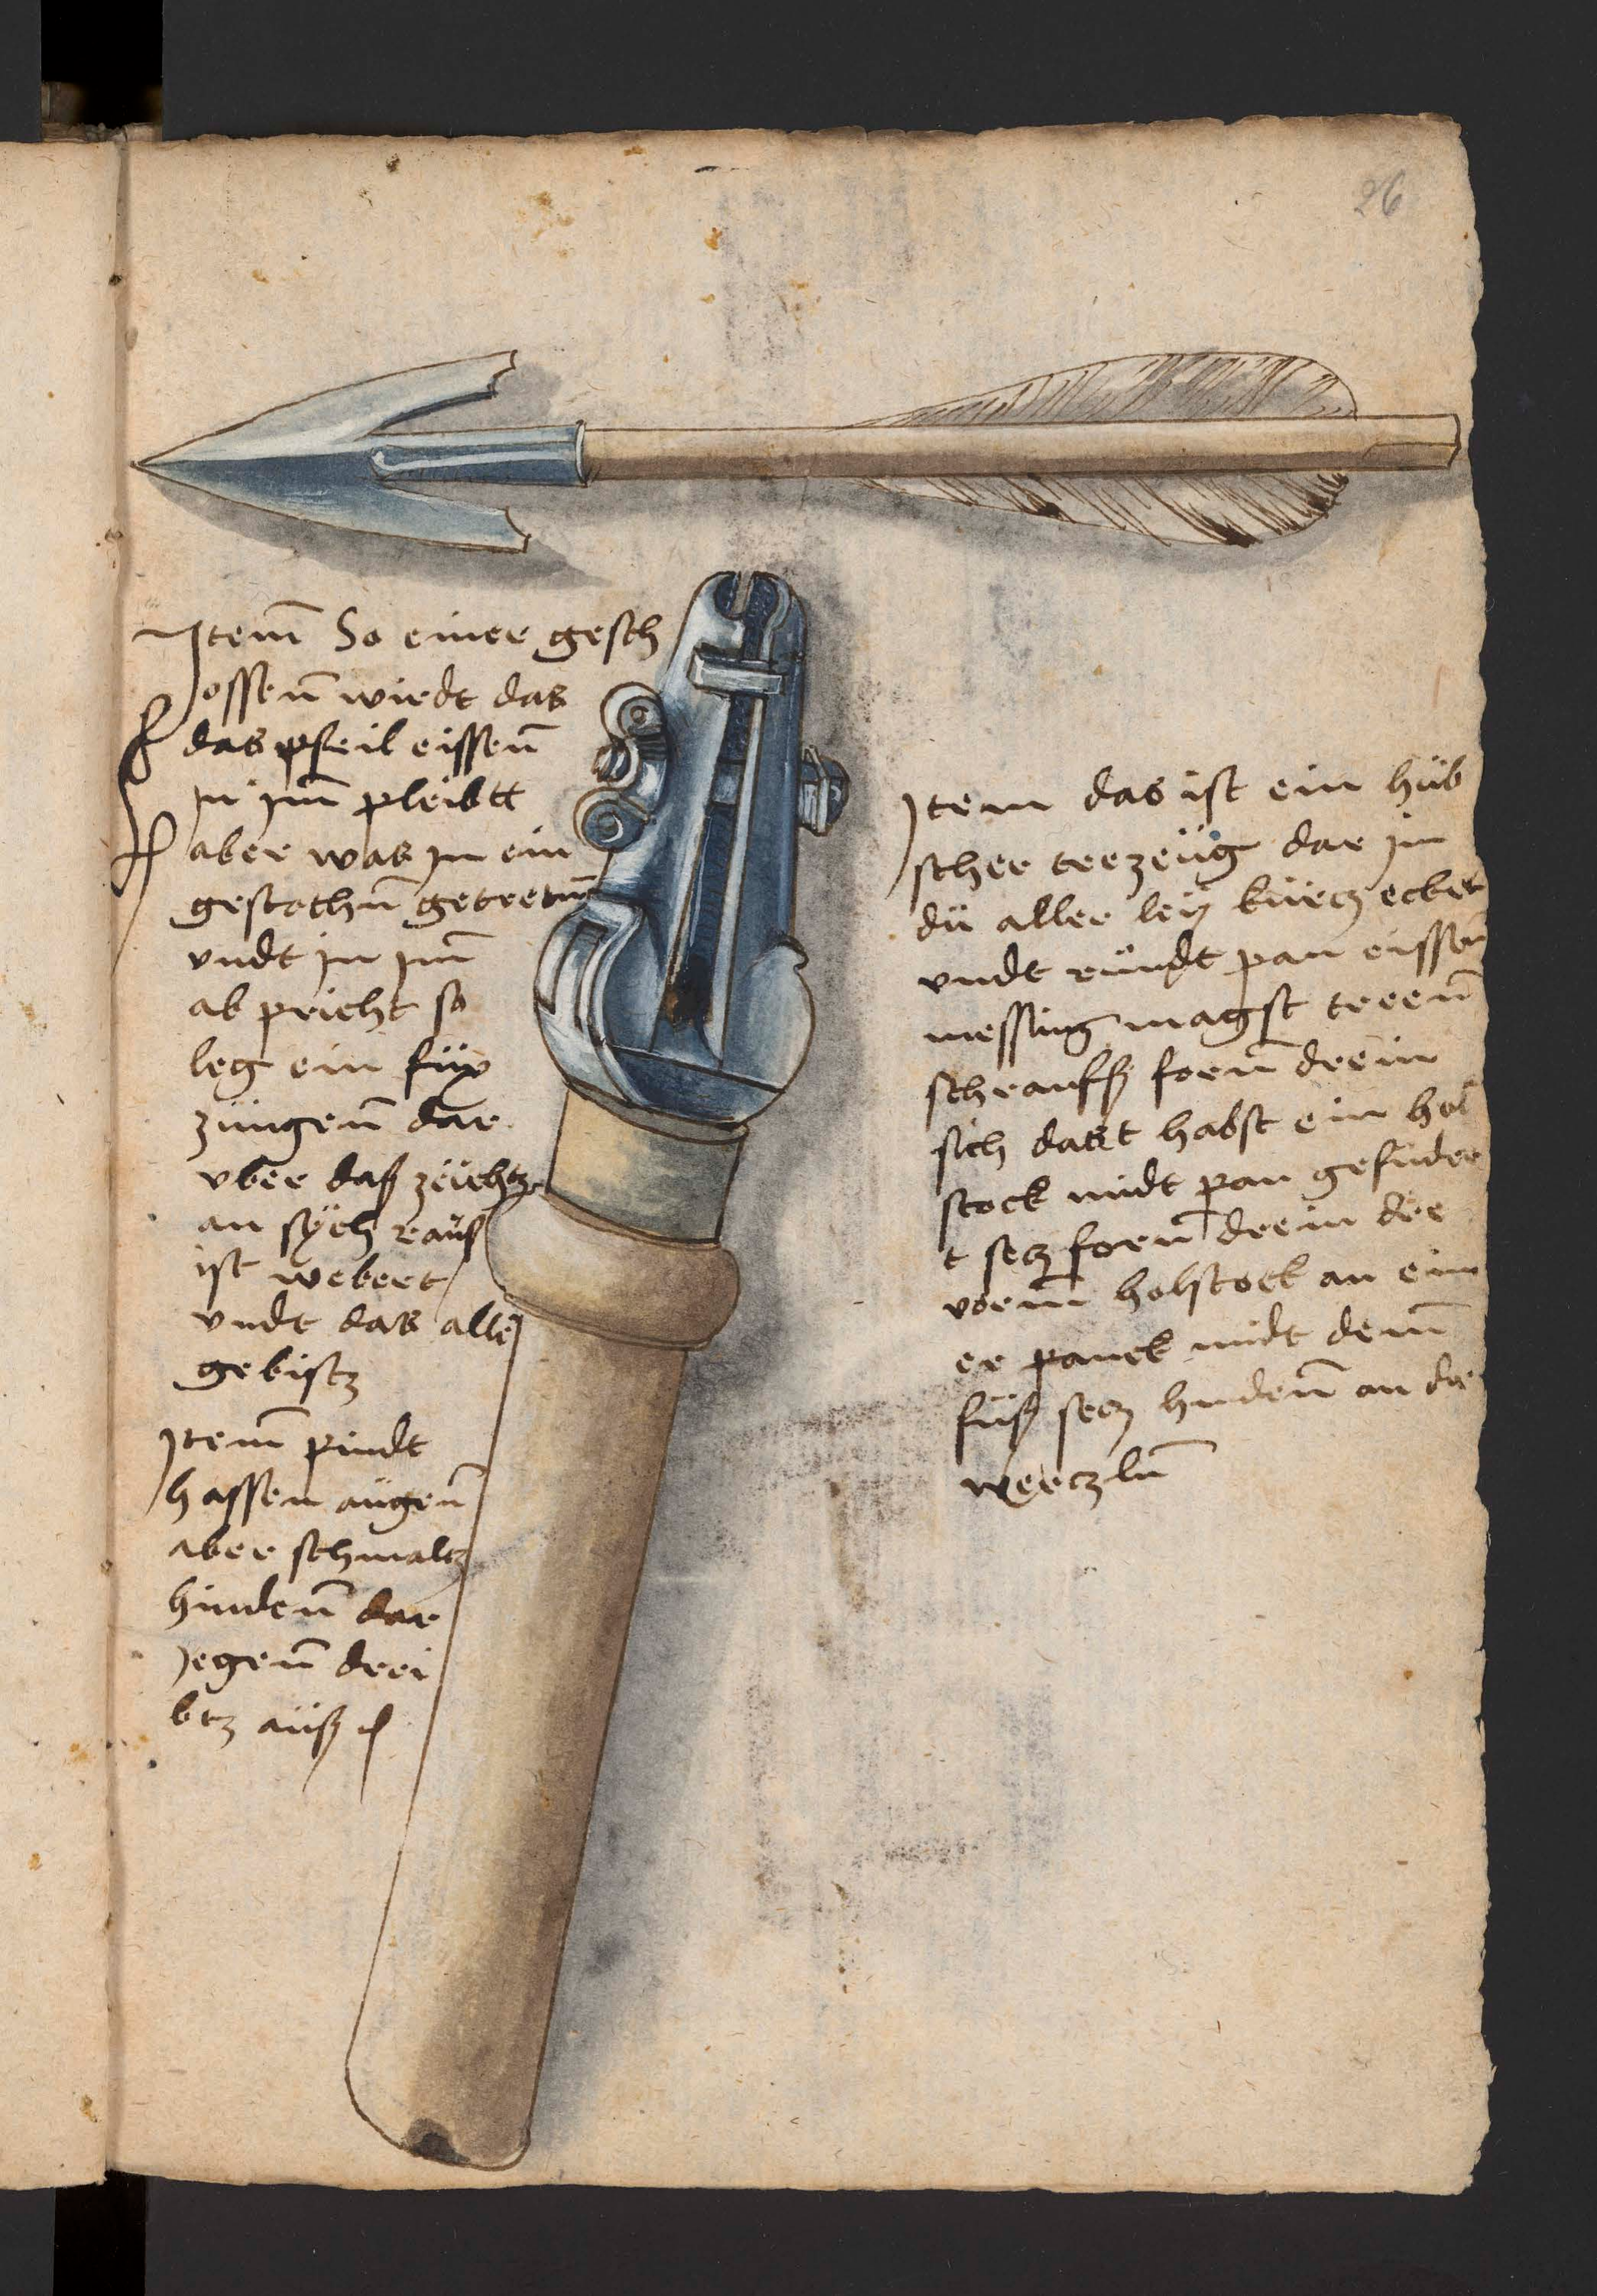 26
Jtem̄ So einer gesch
ossen̄ wirdt das
das pfeil eissen̄
in jm̄ pleibtt
aber was jn ein
gestochn̄ getretn̄
vndt jn jm̄
ab pricht so
leg ein füx
züngen̄ dar
vber daß zeichtz
an sÿch rauß
ist webert
vndt das alle
gebistz
Jtem̄ pindt
hassen augen̄
aber schmaltz
hinden̄ dar
gegen̄ drei
btz auß
Jtem das ist ein hüb
scher treezeüg dar jn
dü aller leÿ kürcz ecket
vndt rundt pan eissen
messing magst treen̄
schrauff forn̄ drein
sich dast habst ein hol
stock midt pan gefüder
t secz forn̄ drein der
vorm̄ holstock an ein
er panck midt dem̄
füß secz hinden̄ an die
werczln̄